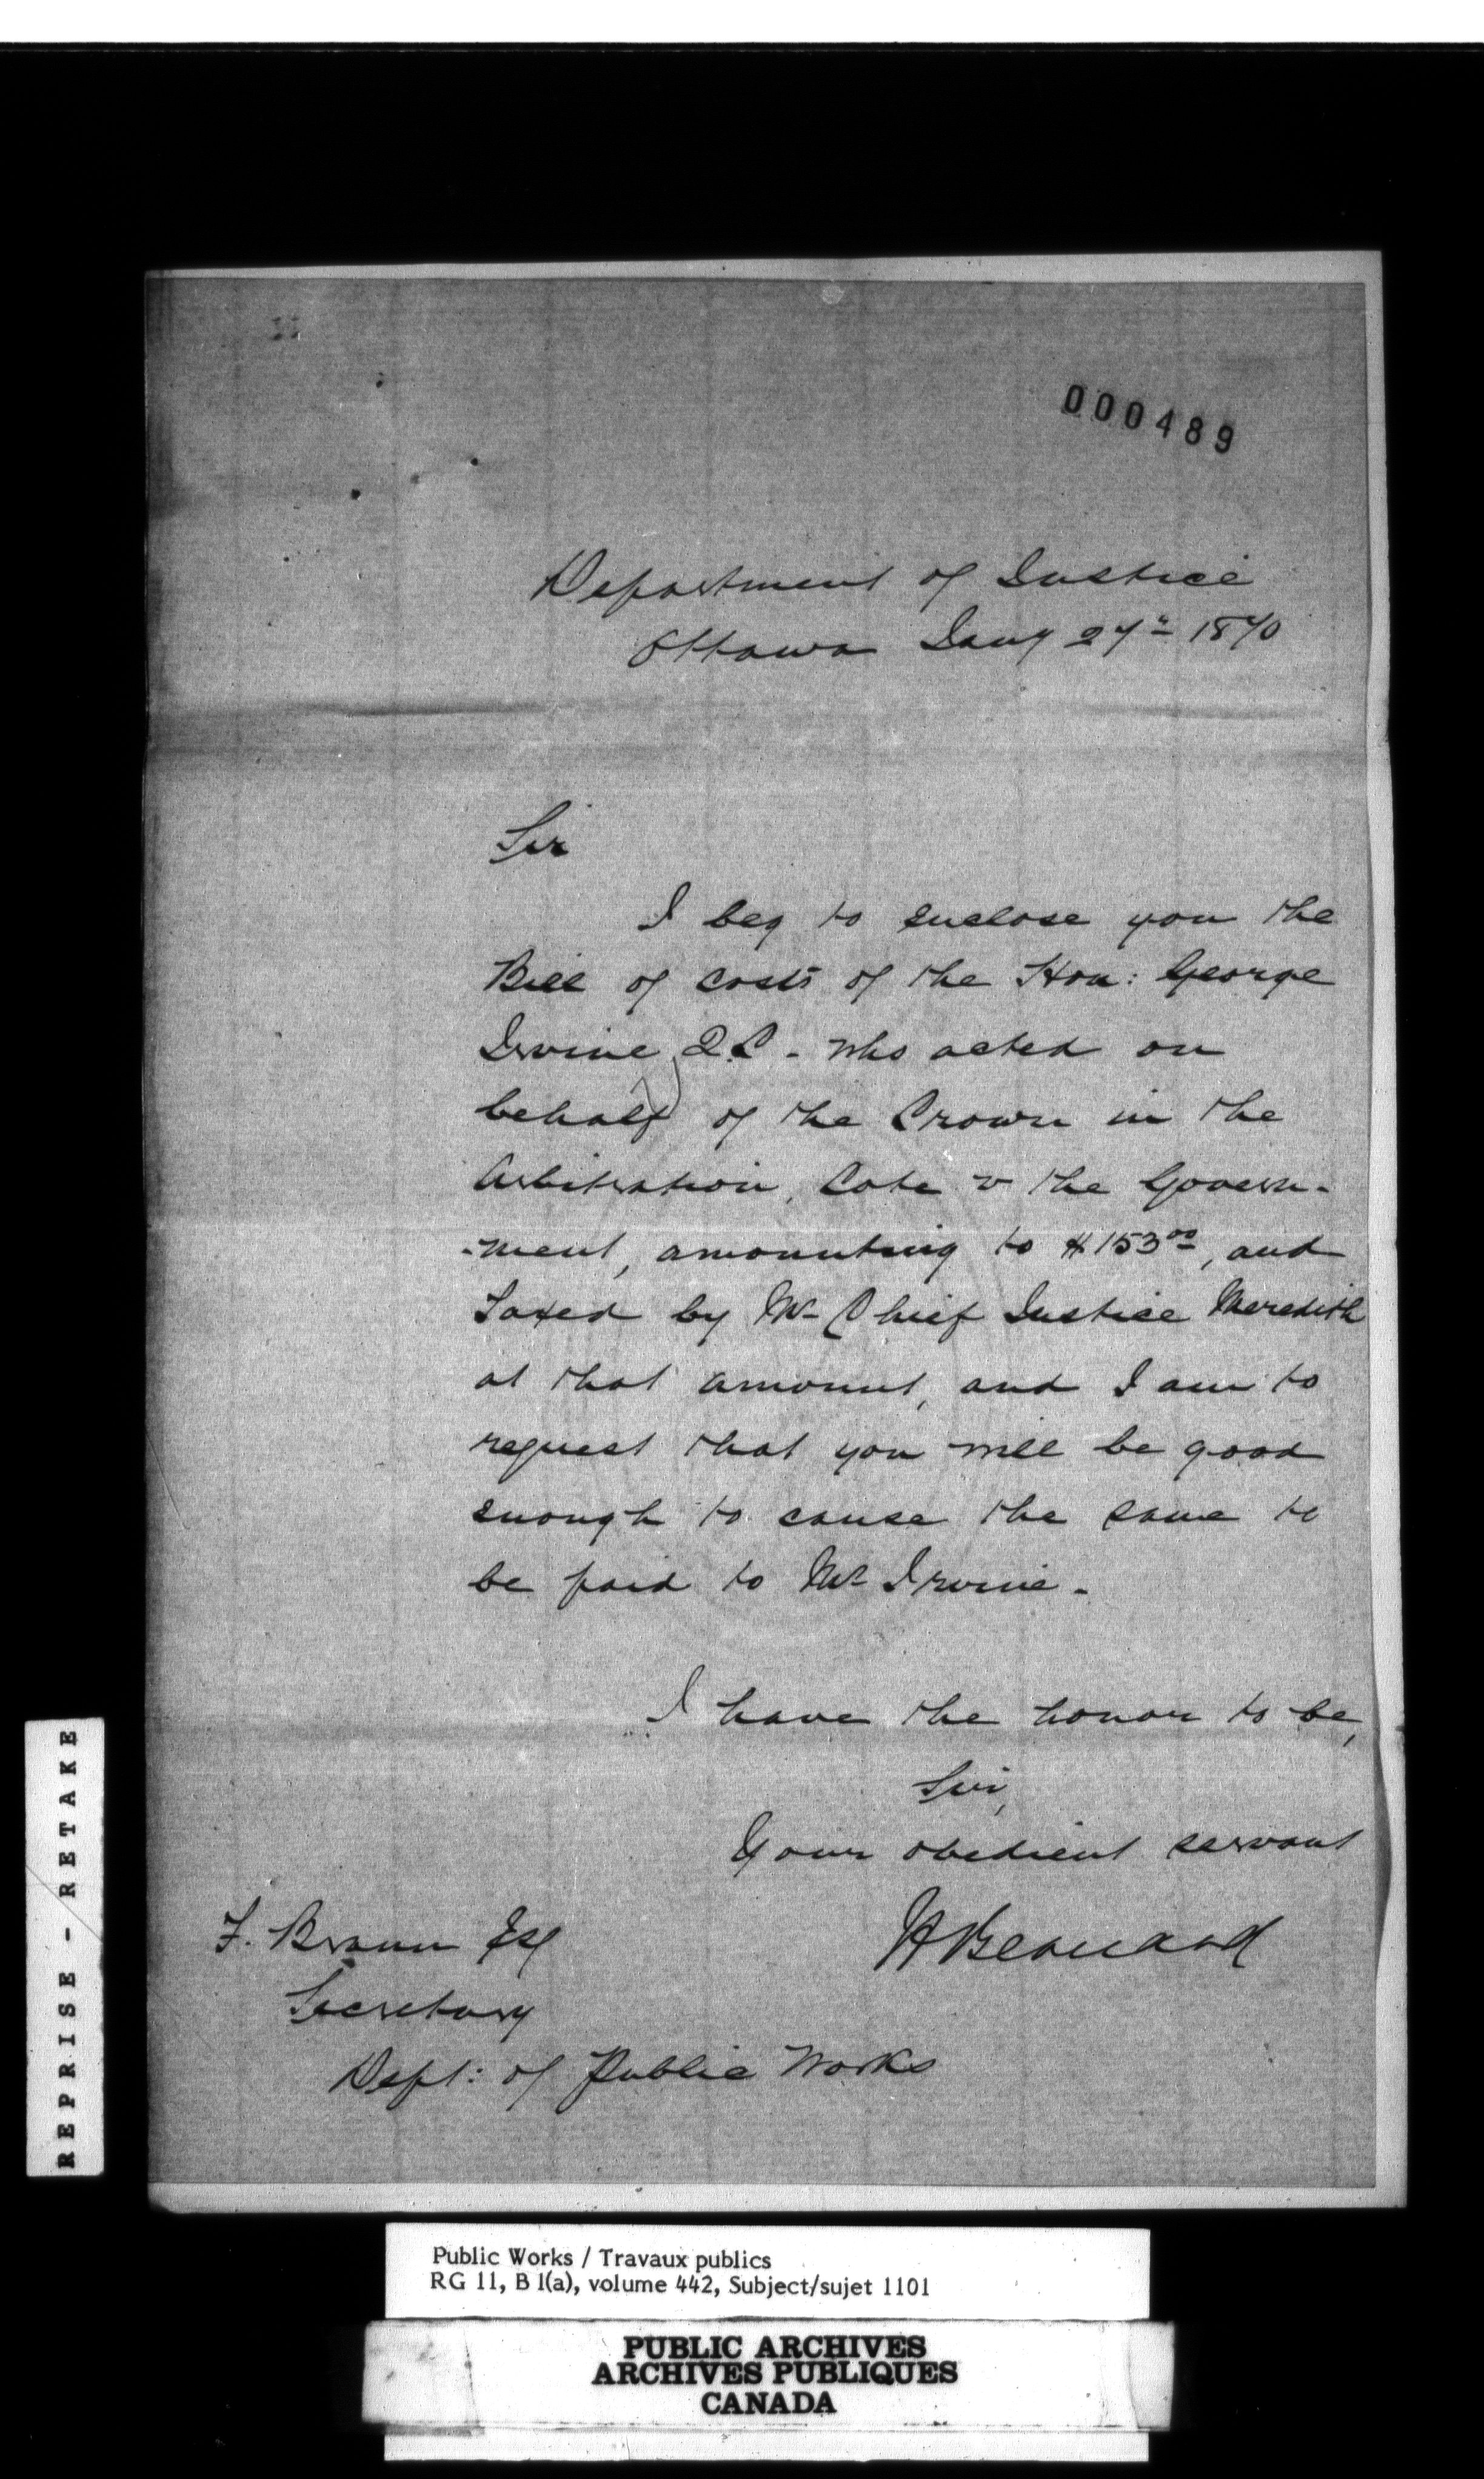 000489
Department of Justice
Ottawa Jany 27th 1870
Sir
I beg to enclose you the
Bill of costs of the Hon: George
Irvine, Q.C - who acted on
behalf of the Crown in the
Arbitration, Cote v the Govern-
-ment, amounting to $153.00, and
Taxed by Mr Chief Justice Meredith
at that amount, and I am to
request that you will be good
enough to cause the same to
be paid to Mr Irvine -
I have the honor to be,
Sir,
Your obedient servant
H Bernard
F. Braun Esq
Secretary
Dept: of Public Works
REPRISE - RETAKE
Public Works / Travaux publics
RG 11, B 1(a), volume 442, Subject/sujet 1101
PUBLIC ARCHIVES
ARCHIVES PUBLIQUES
CANADA